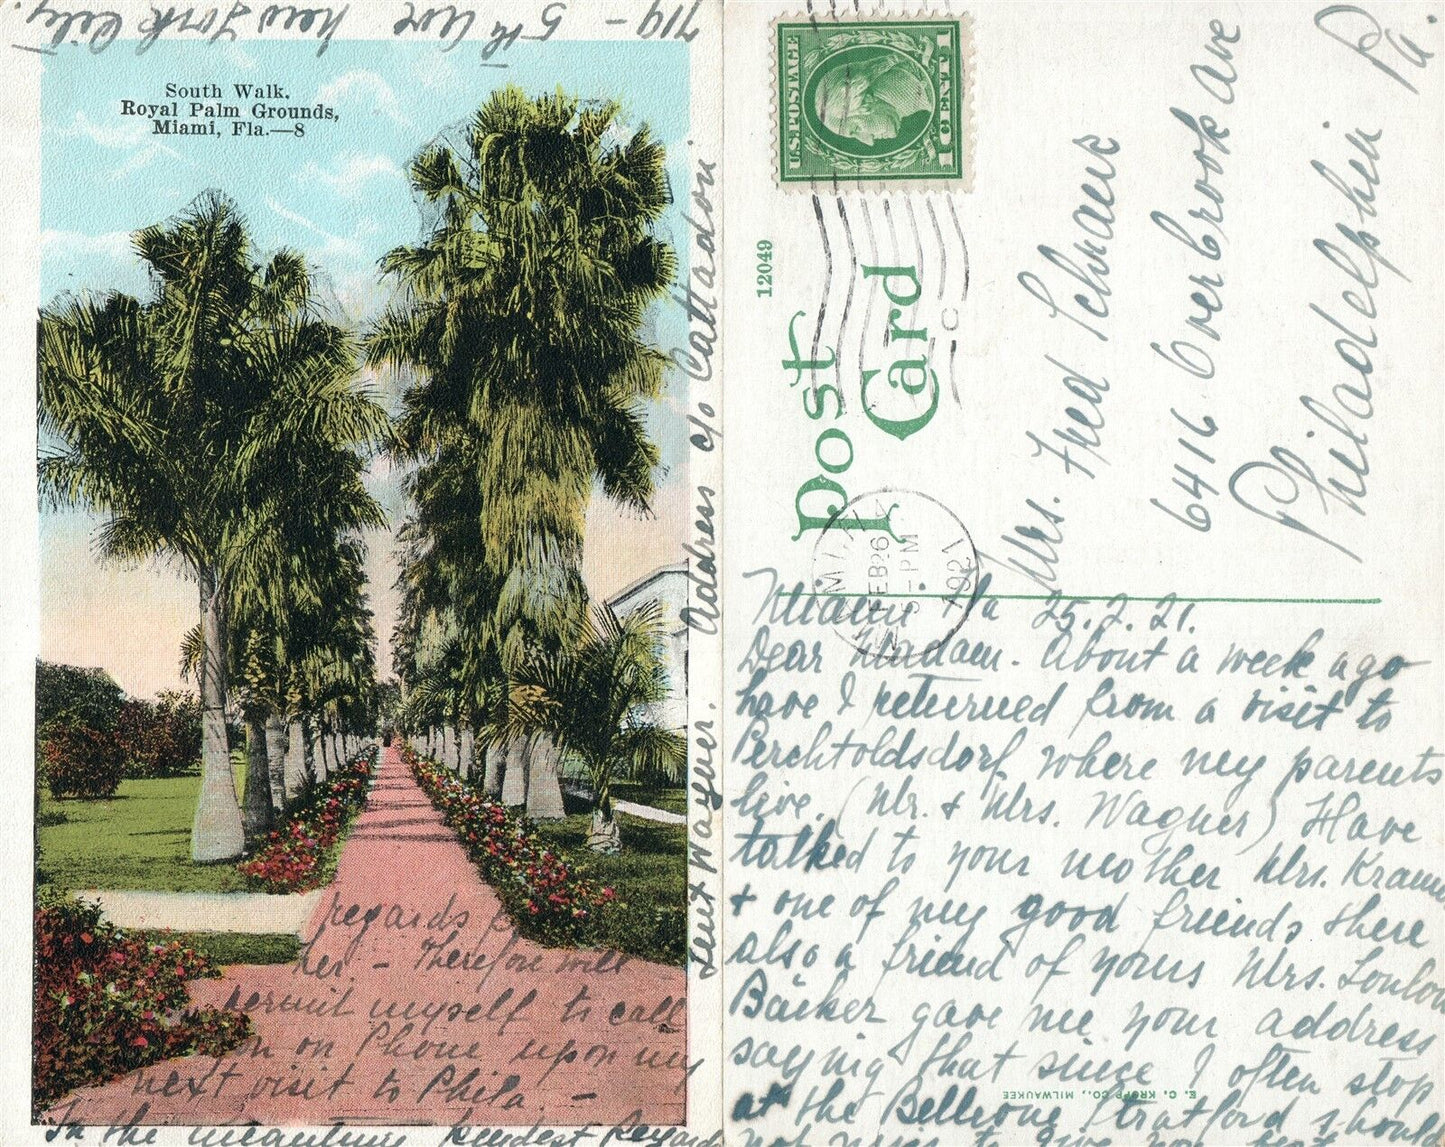 South Walk.
Royal Palm Grounds,
Miami, Fla.—8
regards
her. - Therefore will
permit myself to call
on Phone upon my
next visit to Phila. -
In the meantime kindest Regards
Wagner. Address c/o Cattadori
719 - 5th Ave New York City
U.S. POSTAGE
1 CENT 1
12049
Post
Card
MIAMI
FEB 26
5-PM
1921
Mrs. Fred Schrank
6416 Overbrook Ave
Philadelphia Pa.
Miami Fla 25.2.21.
Dear Madam. About a week ago
have I returned from a visit to
Perchtoldsdorf where my parents
live. (Mr. & Mrs. Wagner) Have
talked to your mother Mrs.
& one of my good friends there
also a friend of yours Mrs.
Bäcker gave me your address
saying that since I often stop
at the Bellevue Stratford should
not
E. C. KROPP CO., MILWAUKEE